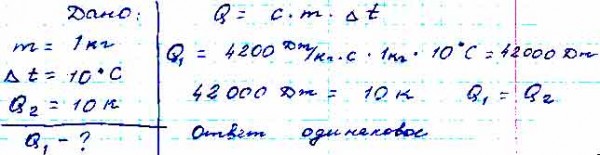 Дано:
m = 1кг
Δt = 10°C
Q₂ = 10к
Q₁ - ?
Q = c. m. Δt
Q₁ = 4200 Дж/кг.c · 1кг · 10°C = 42000 Дж
42000 Дж = 10к Q₁ = Q₂
Ответ одинаковое